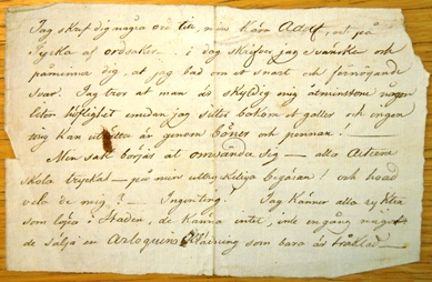 Jag skref dig några ord till, min kära Adolf, det på
Tyska af orsaker – i dag skrifver jag Svenska och
påminner dig, at jag bad om et snart och förnögande
svar. Jag tror at man är skyldig mig åtminstone någon
liten höflighet medan jag sitter bakom et galler och ingen
ting kan uträtta än genom böner och pennan! —
Min sak börjas at omvända sig — alla Acterne
skola tryckas — på min uttryckeliga begäran! och hvad
vela de mig? — Ingenting! Jag känner alla rykten
som löpa i Staden, de känna intet, inte en gång
de sälja en Arlequins Klädning som bara är